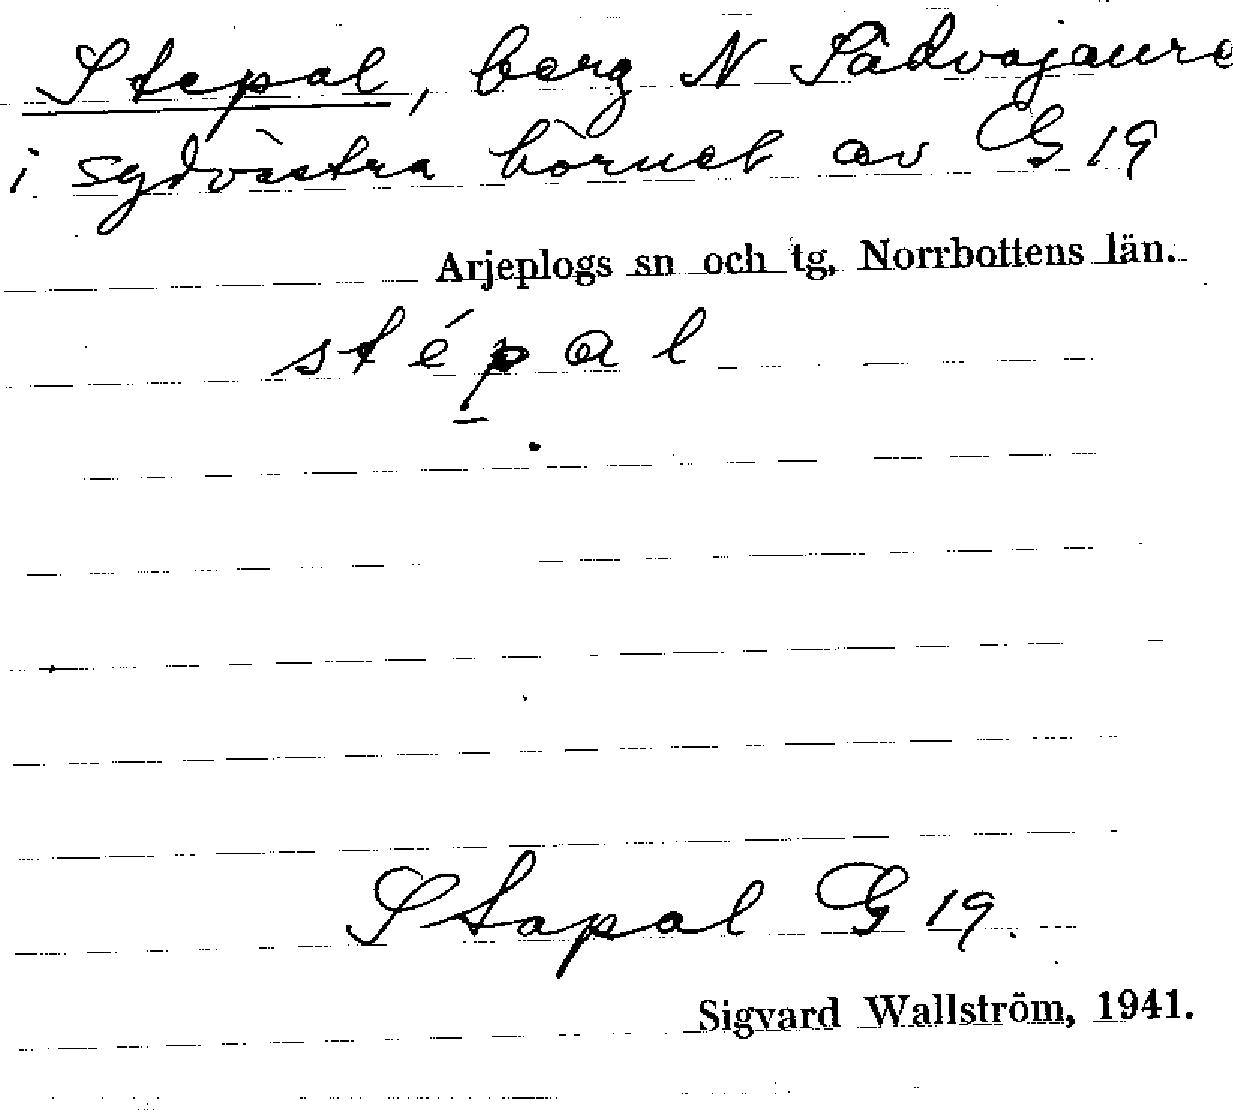 Stepal, berg N Sädvajaure
i sydvästra hörnet av G 19
Arjeplogs sn och tg, Norrbottens län.
stépal
Stapal G 19.
Sigvard Wallström, 1941.